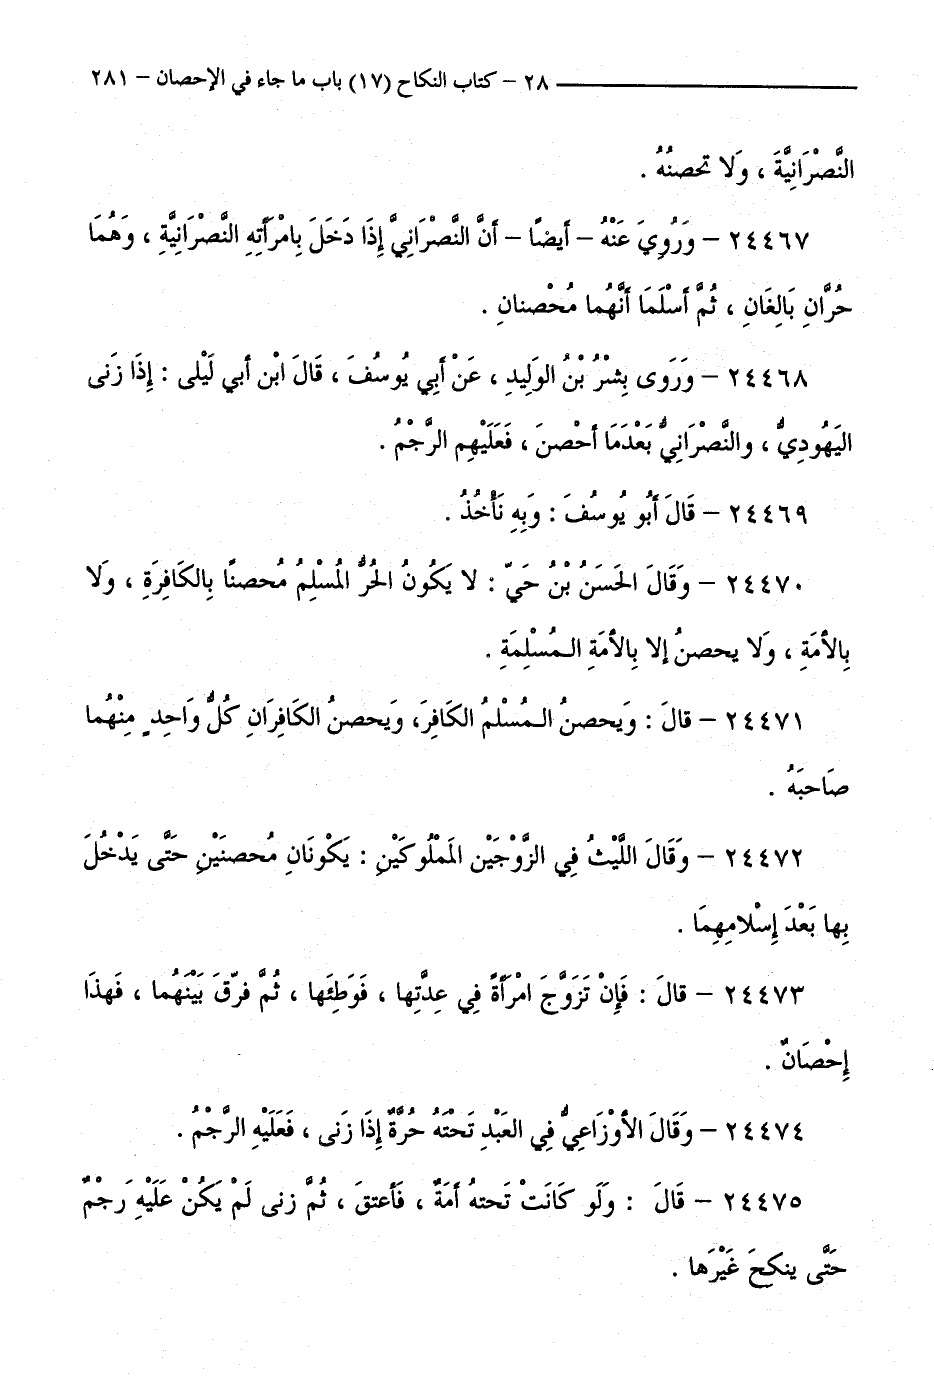 ٢٨ - كتاب النكاح (١٧) باب ما جاء في الإحصان - ٢٨١
النَّصْرَانِيَّةَ ، وَلا تحصنُهُ .
٢٤٤٦٧ - وَرُوِيَ عَنْهُ - أَيضًا - أَنَّ النَّصْرَانِيَّ إِذَا دَخَلَ بِامْرَأَتِهِ النَّصْرَانِيَّةِ ، وَهُمَا
حُرَّانِ بَالِغَانِ ، ثُمَّ أَسْلَمَا أَنَّهُما مُحْصنانِ .
٢٤٤٦٨ - وَرَوى بِشْرُ بْنُ الوَلِيدِ ، عَنْ أَبِي يُوسُفَ ، قَالَ ابْن أبي لَيْلى : إِذَا زَنى
اليَهُودِيُّ ، والنَّصْرَانِيُّ بَعْدَمَا أحْصنَ ، فَعَلَيْهِم الرَّجْمُ .
٢٤٤٦٩ - قَالَ أَبُو يُوسُفَ : وَبِهِ نَأْخُذُ .
٢٤٤٧٠ - وَقَالَ الحَسَنُ بْنُ حَيّ : لا يَكُونُ الحُرُّ المُسْلِمُ مُحصنًا بِالكَافِرَةِ ، وَلا
بِالأَمَةِ ، وَلا يحصنُ إلا بِالأَمَةِ الـمُسْلِمَةِ .
٢٤٤٧١ - قالَ : وَيحصنُ الـمُسْلمُ الكَافِرَ، وَيحصنُ الكَافِرَانِ كُلُّ وَاحِدٍ مِنْهُما
صَاحبَهُ .
٢٤٤٧٢ - وَقَالَ اللَّيْثُ فِي الزَّوْجَيْن المَمْلُوكَيْنِ : يَكْونَانِ مُحصنَيْنِ حَتَّى يَدْخُلَ
بِها بَعْدَ إِسْلامِهِمَا .
٢٤٤٧٣ - قالَ : فَإِنْ تَزَوَّجَ امْرَأَةً فِي عِدَّتِها ، فَوَطِئَها ، ثُمَّ فرّقَ بَيْنَهُما ، فَهذَا
إِحْصَانٌ .
٢٤٤٧٤ - وَقَالَ الأَوْزَاعِيُّ فِي العَبْدِ تَحْتَهُ حُرَّةٌ إِذَا زَنى ، فَعَلَيْهِ الرَّجْمُ .
٢٤٤٧٥ - قَالَ : وَلَو كَانَتْ تَحتهُ أمَةٌ ، فَأعتقَ ، ثُمَّ زنى لَمْ يَكُنْ عَلَيْهِ رَجْمٌ
حَتَّى ينكحَ غَيْرَها .